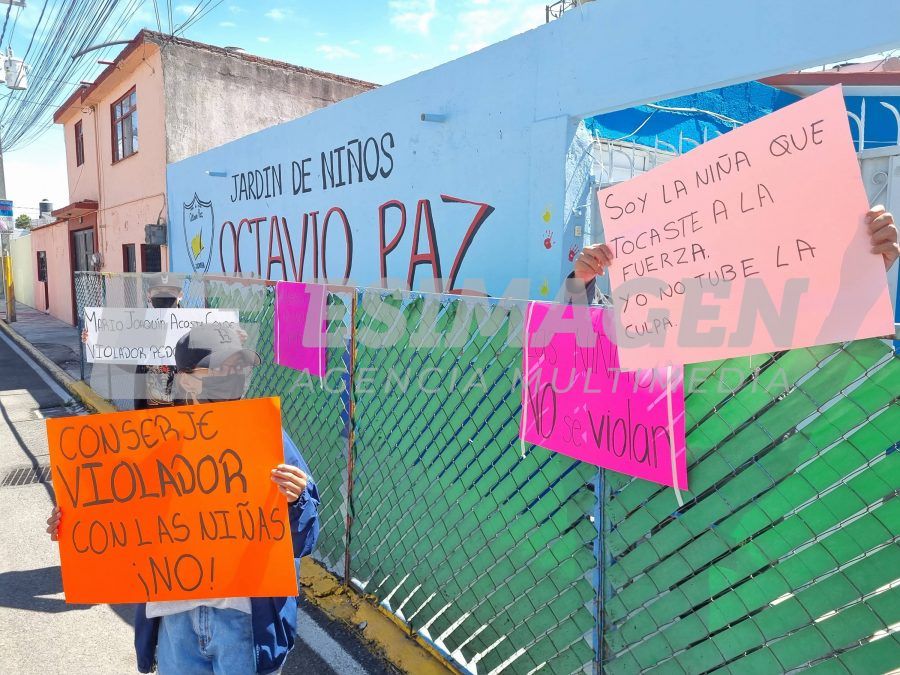 JARDIN DE NIÑOS
OCTAVIO PAZ
SOY LA NIÑA QUE
TOCASTE A LA
FUERZA.
YO NO TUBE LA
CULPA.
MARIO JOAQUÍN ACOSTA
VIOLADOR
ESIMAGEN
AGENCIA MULTIMEDIA
NO se violan
CONSERJE
VIOLADOR
CON LAS NIÑAS
¡NO!